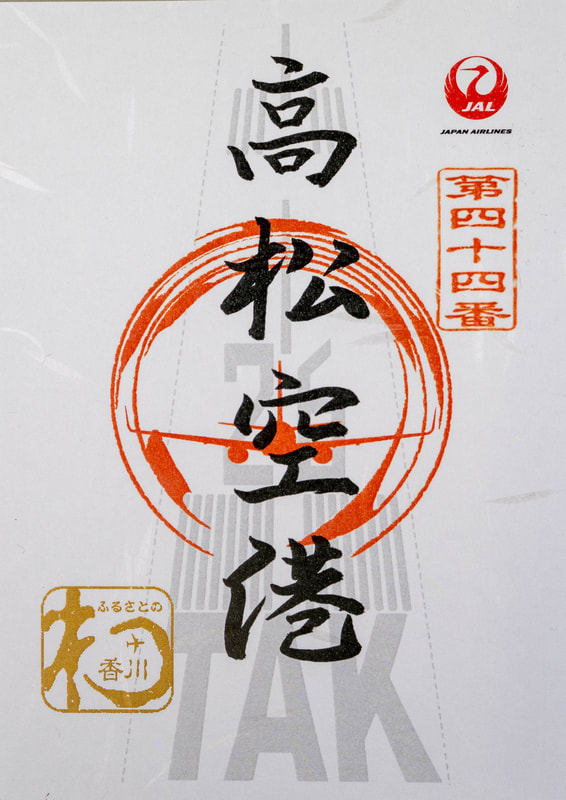 高松空港
JAL
JAPAN AIRLINES
第四十四番
26
TAK
ふるさとの
香川